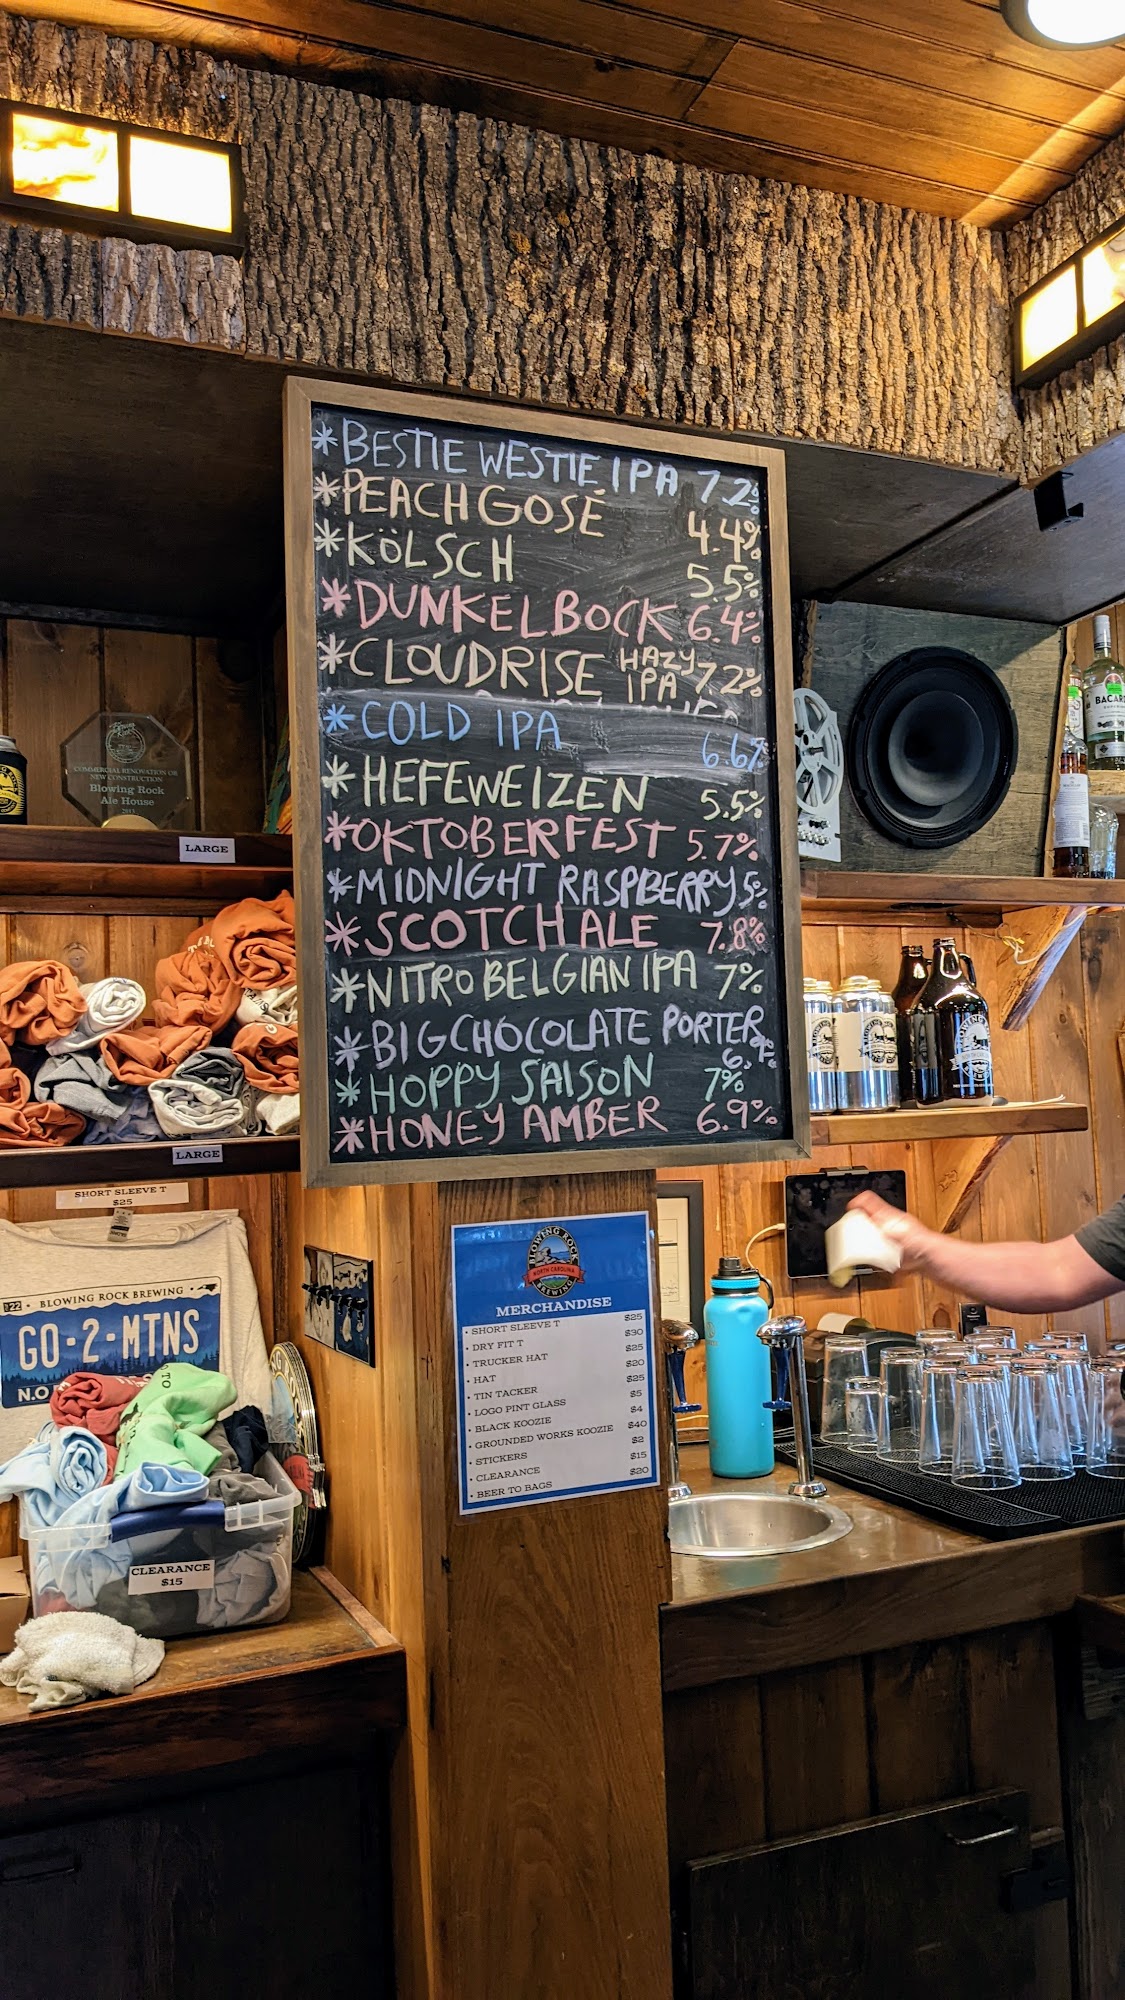 *BESTIE WESTIE IPA 7.2%
*PEACH GOSÉ 4.4%
*KÖLSCH 5.5%
*DUNKELBOCK 6.4%
*CLOUDRISE HAZY IPA 7.2%
*COLD IPA 6.6%
*HEFEWEIZEN 5.5%
*OKTOBERFEST 5.7%
*MIDNIGHT RASPBERRY 5%
*SCOTCH ALE 7.8%
*NITRO BELGIAN IPA 7%
*BIG CHOCOLATE PORTER 6%
*HOPPY SAISON 7%
*HONEY AMBER 6.9%
COMMERCIAL RENOVATION OR
NEW CONSTRUCTION
Blowing Rock
Ale House
LARGE
BACAR
LARGE
SHORT SLEEVE T
$25
'22 • BLOWING ROCK BREWING
GO-2-MTNS
CLEARANCE
$15
BLOWING ROCK
NORTH CAROLINA
BREWING
MERCHANDISE
• SHORT SLEEVE T $25
• DRY FIT T $30
• TRUCKER HAT $25
• HAT $20
• TIN TACKER $25
• LOGO PINT GLASS $5
• BLACK KOOZIE $4
• GROUNDED WORKS KOOZIE $40
• STICKERS $2
• CLEARANCE $15
• BEER TO BAGS $20